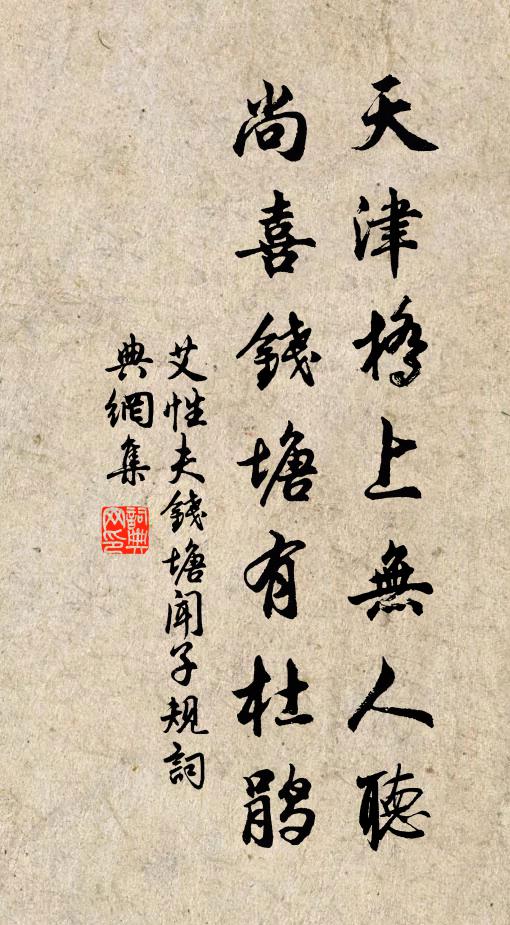 天津橋上無人聽
尚喜錢塘有杜鵑
艾性夫錢塘聞子規詞
典網集
詞典網印